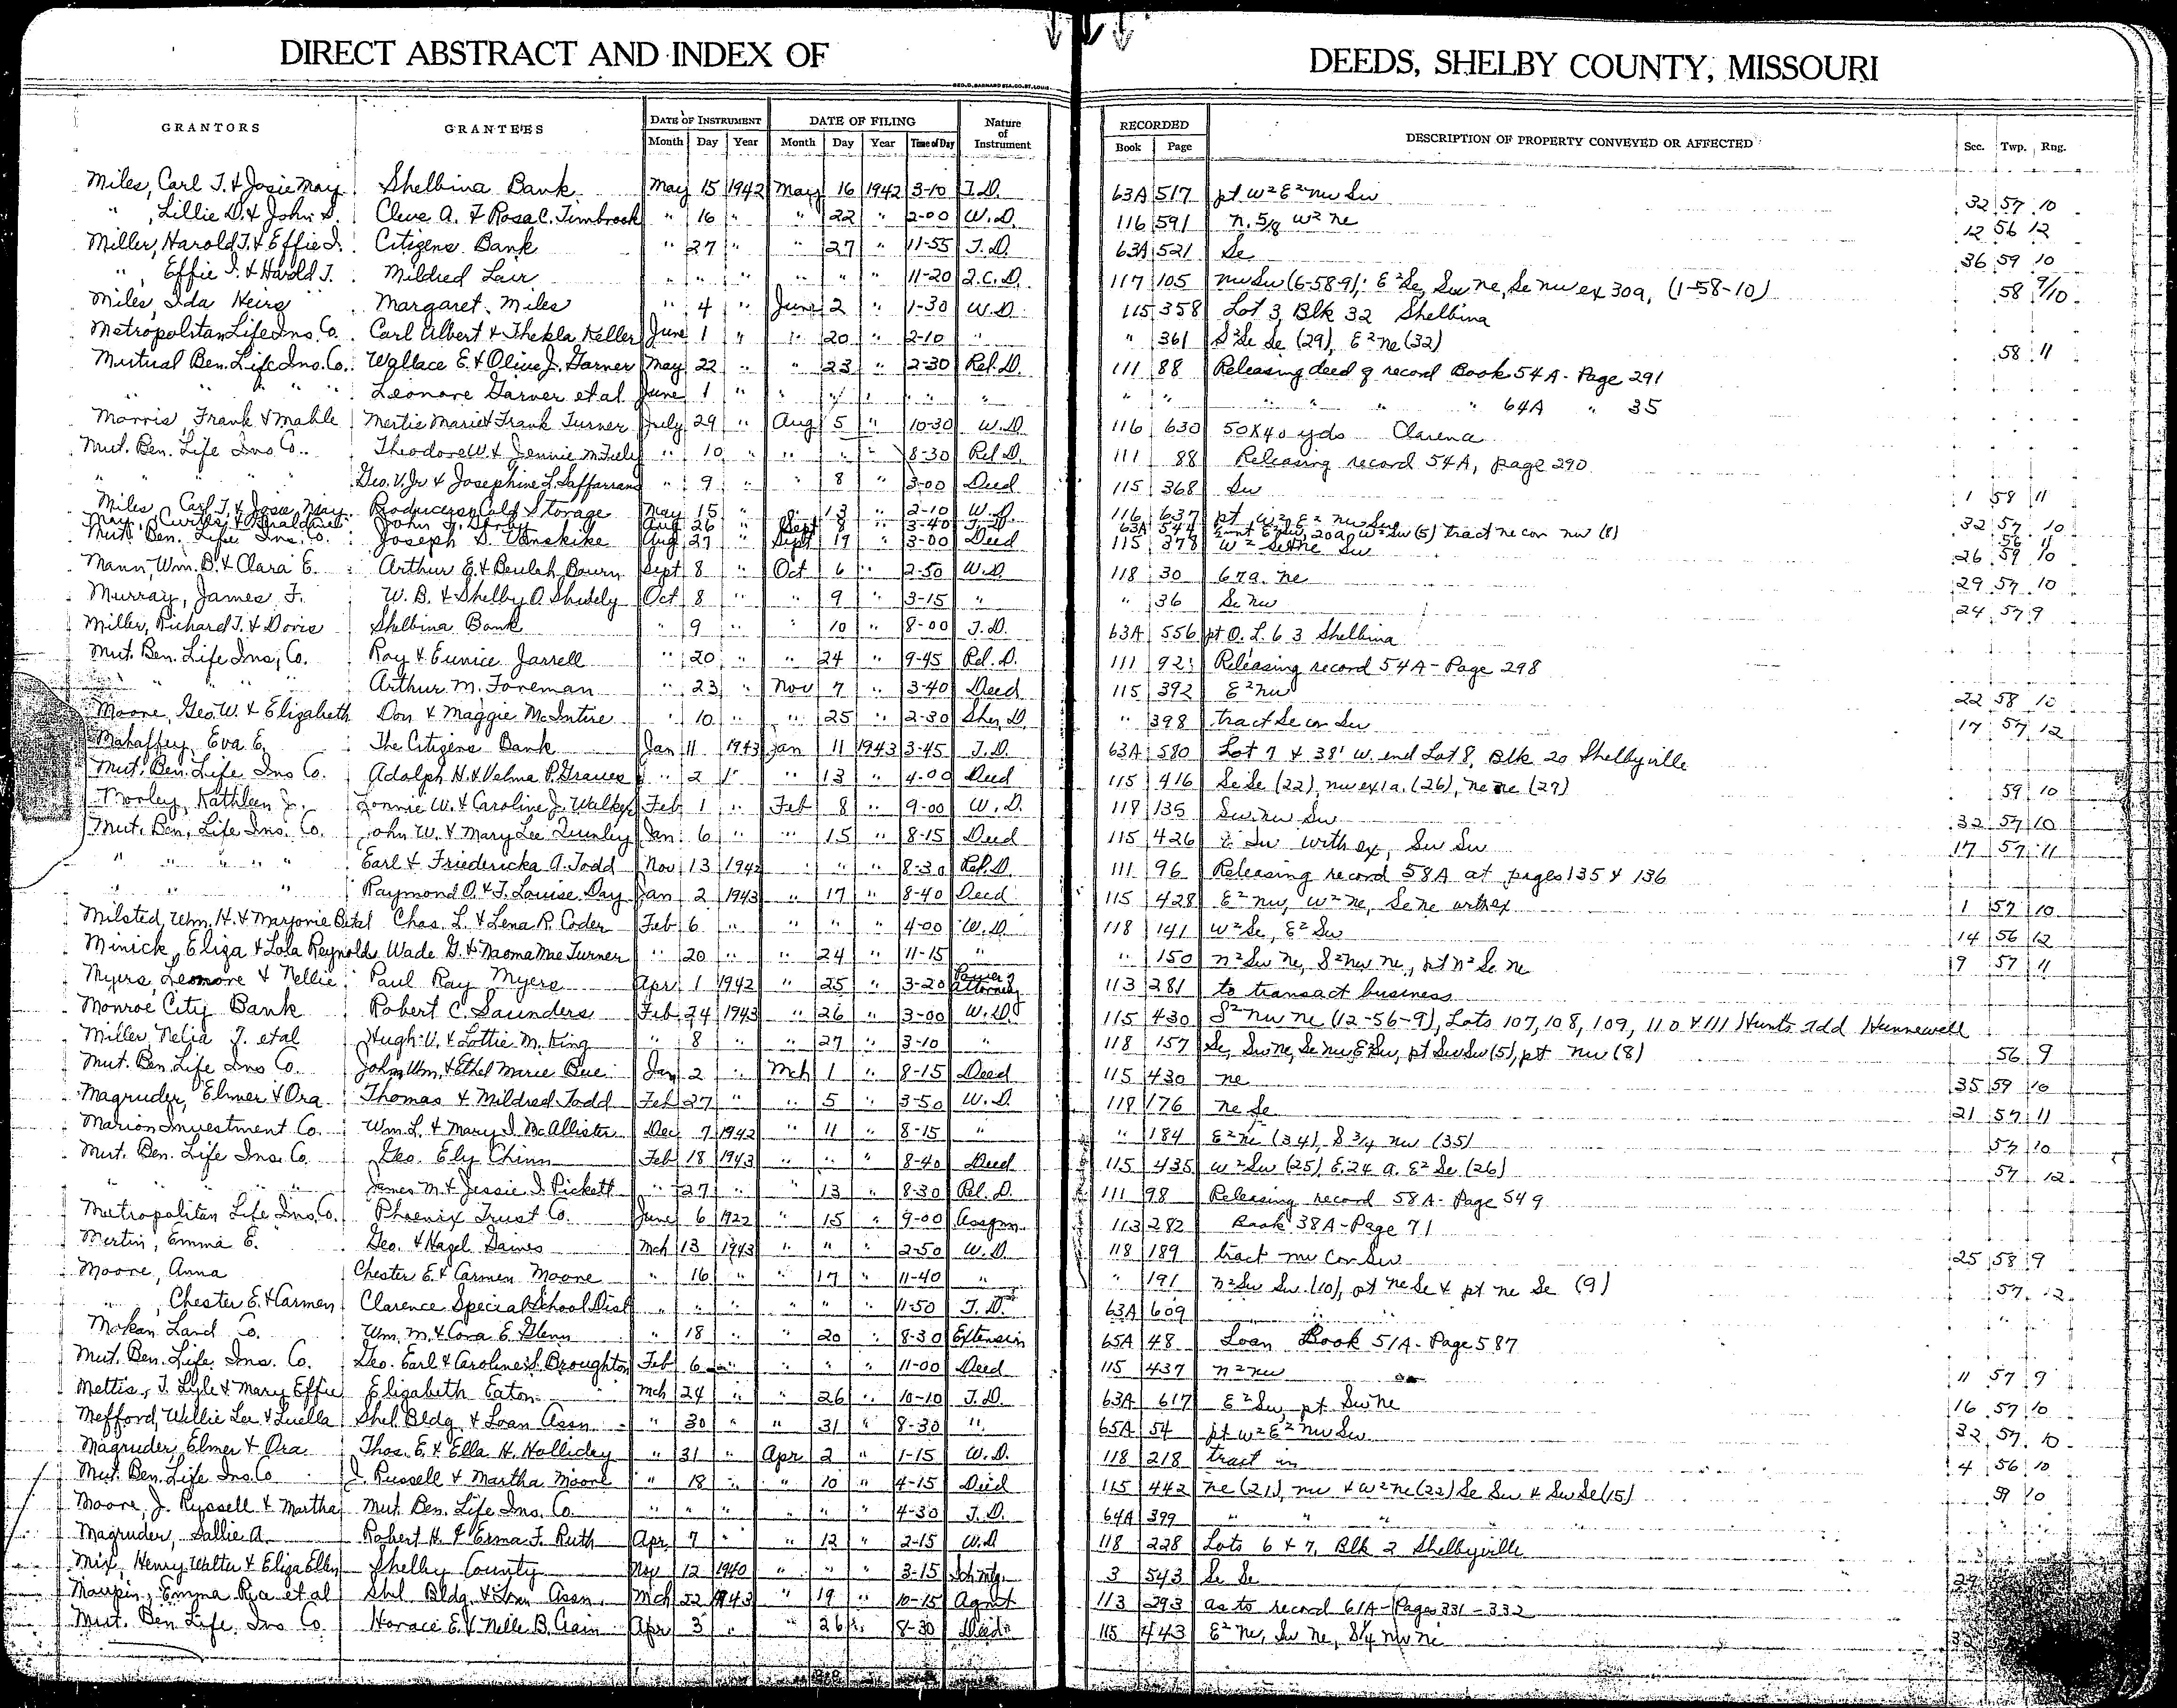 DIRECT ABSTRACT AND INDEX OF DEEDS, SHELBY COUNTY, MISSOURI
GRANTORS GRANTEES DATE OF INSTRUMENT DATE OF FILING Nature of Instrument RECORDED DESCRIPTION OF PROPERTY CONVEYED OR AFFECTED Sec. Twp. Rng.
Month Day Year Month Day Year Time of Day Book Page
Miles, Carl T. & Josie May Shelbina Bank May 15 1942 May 16 1942 3-10 T.D. 63A 517 pt W² E² nw Sw 32 57 10
" , Lillie D. & John S. Cleve A. & Rosa C. Timbrook " 16 " " 22 " 2-00 W.D. 116 591 n. 5/8 W² ne 12 56 12
Miller, Harold T. & Effie I. Citizens Bank " 27 " " 27 " 11-55 T.D. 63A 521 Se 36 59 10
" , Effie I. & Harold T. Mildred Lair " " " " " " 11-20 Q.C.D. 117 105 nw Sw (6-58-9); E² Se, Sw ne, Se nw ex 30a, (1-58-10) 58 9/10
Miles, Ida Heirs Margaret Miles " 4 " June 2 " 1-30 W.D. 115 358 Lot 3, Blk 32 Shelbina
Metropolitan Life Ins. Co. Carl Albert & Thekla Keller June 1 " " 20 " 2-10 " " 361 S² Se Se (29), E² ne (32) 58 11
Mutual Ben. Life Ins. Co. Wallace E. & Olive J. Garner May 22 " " 23 " 2-30 Rel. D. 111 88 Releasing deed of record Book 54A - Page 291
" " " " Leonore Garver et al June 1 " " " " " " " " " " " " 64A " 35
Morris, Frank & Mable Mertis Marie & Frank Turner July 29 " Aug 5 " 10-30 W.D. 116 630 50X40 yds Clarence
Mut. Ben. Life Ins Co. Theodore W. & Jennie McFeely " 10 " " " " 8-30 Rel D. 111 88 Releasing record 54A, page 290
" " " Geo. V. Jr & Josephine L. Saffarrans " 9 " " 8 " 3-00 Deed 115 368 Sw 1 58 11
Miles, Carl T. & Josie May Producers Cold Storage May 15 " " 13 " 2-10 W.D. 116 637 pt W² E² nw Sw 32 57 10
May, Curtis & Geraldine John F. Aug 26 " Sept 8 " 3-40 T.D. 63A 544 E² Sw, 20a W² Sw (5) tract ne cor nw (8) 56 11
Mut. Ben. Life Ins. Co. Joseph D. Vanskike Aug 27 " Sept 19 " 3-00 Deed 115 378 W² Se & ne Sw 26 59 10
Mann, Wm. B. & Clara E. Arthur E. & Beulah Bourn Sept 8 " Oct 6 " 2-50 W.D. 118 30 67a. ne 29 57 10
Murray, James F. W. B. & Shelby O. Shively Oct 8 " " 9 " 3-15 " " 36 Se nw 24 57 9
Miller, Richard T. & Doris Shelbina Bank " 9 " " 10 " 8-00 T.D. 63A 556 pt O. L. 63 Shelbina
Mut. Ben. Life Ins, Co. Roy & Eunice Jarrell " 20 " " 24 " 9-45 Rel. D. 111 92 Releasing record 54A - Page 298
" " " " Arthur M. Foreman " 23 " Nov 7 " 3-40 Deed 115 392 E² nw 22 58 10
Moore, Geo. W. & Elizabeth Don & Maggie McIntire " 10 " " 25 " 2-30 Sher. D. " 398 tract Se cor Sw 17 57 12
Mahaffey, Eva E. The Citizens Bank Jan 11 1943 Jan 11 1943 3-45 T.D. 63A 580 Lot 7 & 38' W. end Lot 8, Blk 20 Shelbyville
Mut. Ben. Life Ins Co. Adolph H. & Velma P. Graves " 2 " " 13 " 4-00 Deed 115 416 Se Se (22), nw ex 1a. (26), ne ne (27) 59 10
Morley, Kathleen J. Lonnie W. & Caroline J. Walker Feb 1 " Feb 8 " 9-00 W.D. 118 135 Sw nw Sw 32 57 10
Mut. Ben. Life Ins. Co. John W. & Mary Lee Quinley Jan 6 " " 15 " 8-15 Deed 115 426 Sw with ex, Sw Sw 17 57 11
" " " " " Earl & Friedericka A. Todd Nov 13 1942 " " " 8-30 Rel. D. 111 96 Releasing record 58A at pages 135 & 136
" " " Raymond O. & T. Louise Day Jan 2 1943 " 17 " 8-40 Deed 115 428 E² nw, W² ne, Se ne with ex 1 57 10
Milsted, Wm. H. & Marjorie B. et al Chas. L. & Lena R. Coder Feb 6 " " " " 4-00 W.D. 118 141 W² Se, E² Sw 14 56 12
Minick, Eliza & Lola Reynolds Wade G. & Naoma Mae Turner " 20 " " 24 " 11-15 " " 150 n² Sw ne, S² nw ne, pt n² Se ne 9 57 11
Myers, Leonore & Nellie Paul Ray Myers Apr 1 1942 " 25 " 3-20 Power of Attorney 113 281 to transact business
Monroe City Bank Robert C. Saunders Feb 24 1943 " 26 " 3-00 W.D. 115 430 S² nw ne (12-56-9), Lots 107, 108, 109, 110 & 111 Hunts add Hunnewell
Miller, Nelia T. et al Hugh V. & Lottie M. King " 8 " " 27 " 3-10 " 118 157 Se, Sw ne, Se nw, E² Sw, pt Sw Sw (5), pt nw (8) 56 9
Mut. Ben. Life Ins Co. John Wm. & Ethel Marie Bue Jan 2 " Mch 1 " 8-15 Deed 115 430 ne 35 59 10
Magruder, Elmer & Ora Thomas & Mildred Todd Feb 27 " " 5 " 3-50 W.D. 118 176 ne Se 21 57 11
Marion Investment Co. Wm. L. & Mary I. McAllister Dec 7 1942 " 11 " 8-15 " " 184 E² ne (34), S 3/4 nw (35) 57 10
Mut. Ben. Life Ins. Co. Geo. Ely Chinn Feb 18 1943 " " " 8-40 Deed 115 435 W² Sw (25), E. 24 a. E² Se (26) 57 12
" " " " James M. & Jessie I. Pickett " 27 " " 13 " 8-30 Rel. D. 111 98 Releasing record 58A - Page 549
Metropolitan Life Ins. Co. Phoenix Trust Co. June 6 1922 " 15 " 9-00 Assgm. 113 282 Book 38A - Page 71
Mertin, Emma E. Geo. & Hazel Gaines Mch 13 1943 " " " 2-50 W.D. 118 189 tract nw Cor Sw 25 58 9
Moore, Anna Chester E. & Carmen Moore " 16 " " 17 " 11-40 " " 191 n² Sw Sw (10), pt ne Se & pt ne Se (9) 57 12
" , Chester E. & Carmen Clarence Special School Dist " " " " " " 11-50 T.D. 63A 609 " " "
Mokan Land Co. Wm. M. & Cora E. Glenn " 18 " " 20 " 8-30 Extension 65A 48 Loan Book 51A - Page 587
Mut. Ben. Life. Ins. Co. Geo. Earl & Caroline S. Broughton Feb 6 " " " " 11-00 Deed 115 437 n² nw 11 57 9
Mettis, T. Lyle & Mary Effie Elizabeth Eaton Mch 24 " " 26 " 10-10 T.D. 63A 617 E² Sw, pt Sw ne 16 57 10
Mefford, Willie Lee & Luella Shel. Bldg. & Loan Assn " 30 " " 31 " 8-30 " 65A 54 pt W² E² nw Sw 32 57 10
Magruder, Elmer & Ora Thos. E. & Ella H. Holliday " 31 " Apr 2 " 1-15 W.D. 118 218 tract in 4 56 10
Mut. Ben. Life. Ins. Co J. Russell & Martha Moore " 18 " " 10 " 4-15 Deed 115 442 ne (21), nw & W² ne (22) Se Sw & Sw Se (15) 59 10
Moore, J. Russell & Martha Mut. Ben. Life Ins. Co. " " " " " " 4-30 T.D. 64A 399 " " " "
Magruder, Sallie A. Robert H. & Erma F. Ruth Apr 7 " " 12 " 2-15 W.D 118 228 Lots 6 & 7, Blk 2 Shelbyville
Mix, Henry Walter & Eliza Ellen Shelby County Nov 12 1940 " " " 3-15 Sch mtg. 3 543 Se Se
Maupin, Emma Rice et al Shel Bldg. & Loan Assn. Mch 22 1943 " 19 " 10-15 Agmt 113 293 as to record 61A - Pages 331 - 332
Mut. Ben. Life. Ins Co Horace E. & Nelle B. Cain Apr 3 " " 26 " 8-30 Deed 115 443 E² ne, Sw ne, S¼ nw ne